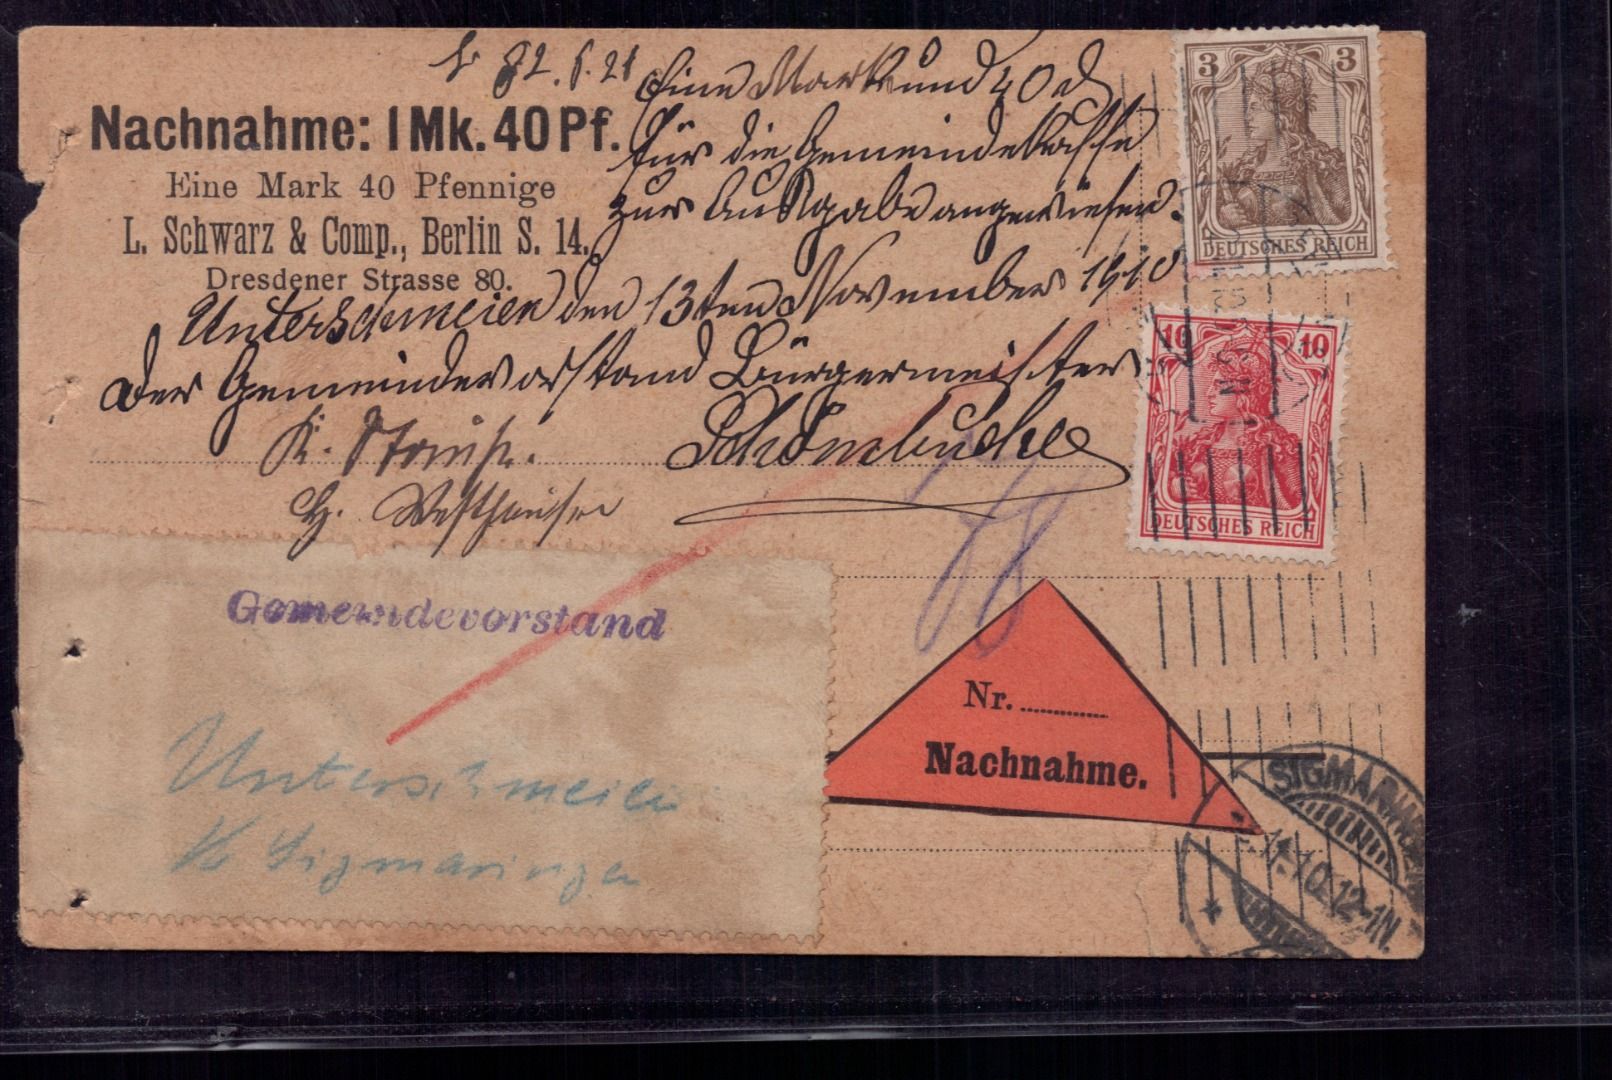 82.
Eine Mark und 40 d
Nachnahme: 1 Mk. 40 Pf.
für die Gemeindekasse
Eine Mark 40 Pfennige
zur Ausgabe angewiesen.
L. Schwarz & Comp., Berlin S. 14.
Dresdener Strasse 80.
Unterschmeien den 13ten November 1910
Der Gemeindevorstand Bürgermeister
K. Stomp.
H.
Gemeindevorstand
Unterschmeien
Sigmaringen
Nr. ............
Nachnahme.
3 3
DEUTSCHES REICH
10 10
DEUTSCHES REICH
SIGMARINGEN
11.10.12-1N.